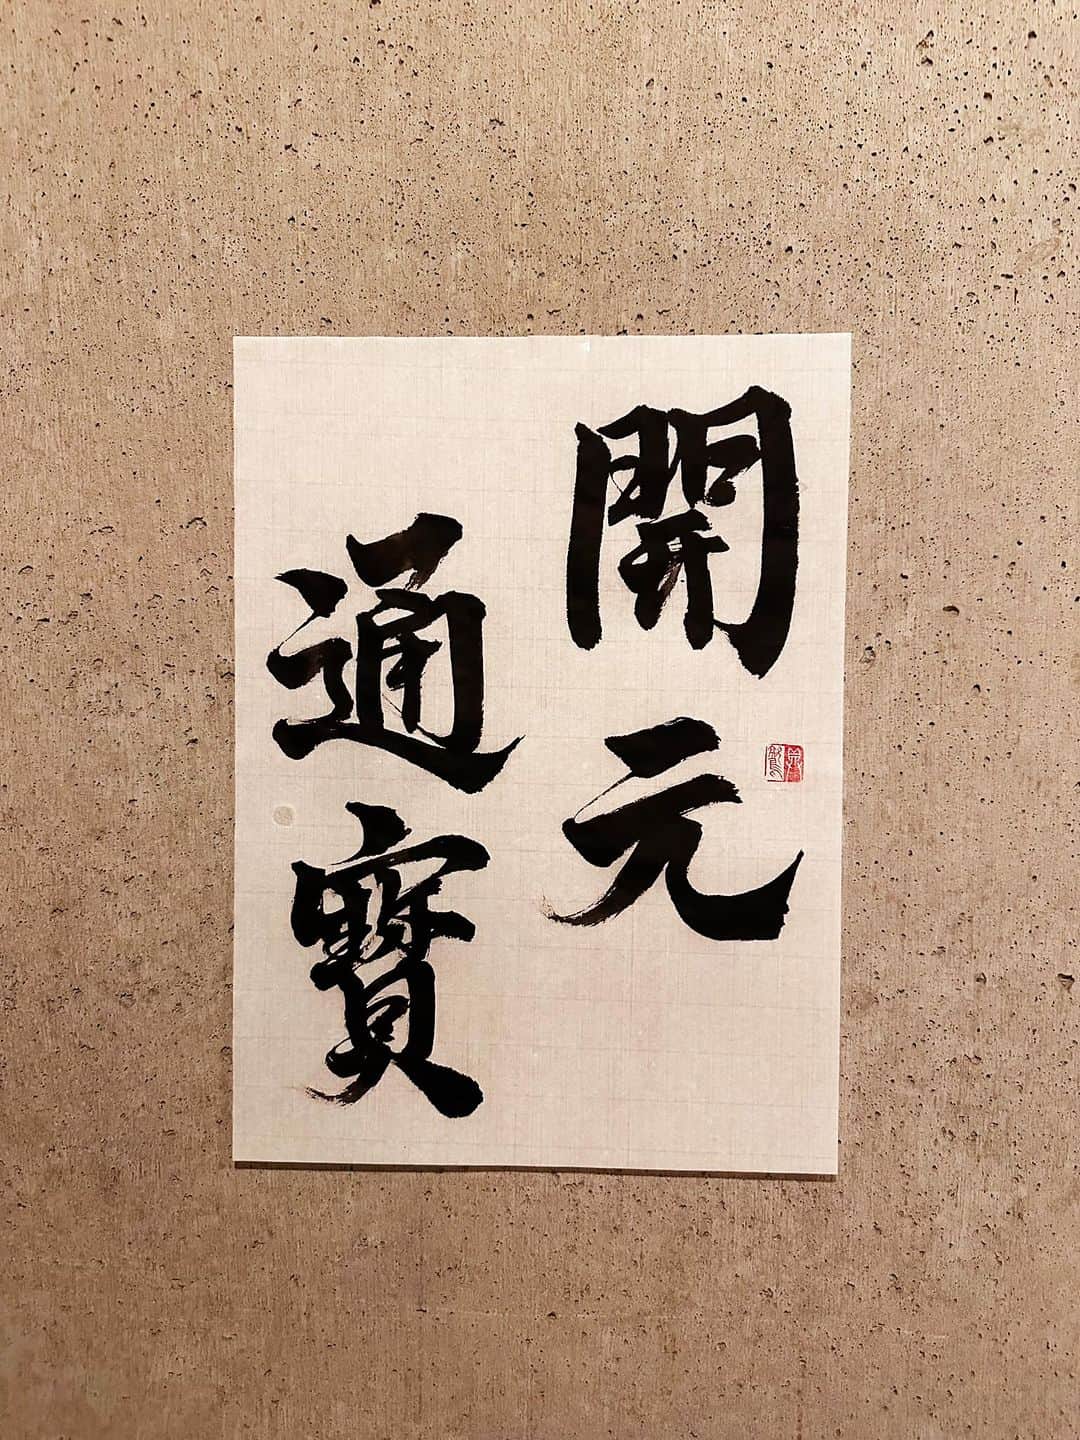 開元
通寶